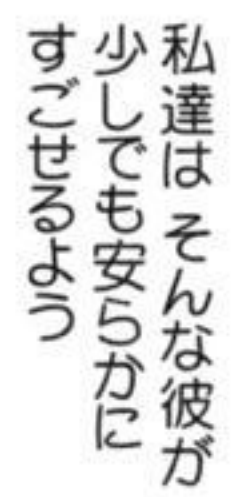 私達は そんな彼が
少しでも安らかに
すごせるよう